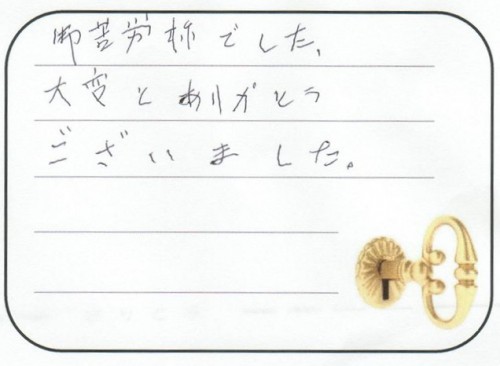 御苦労様でした、
大変とありがとう
ございました。